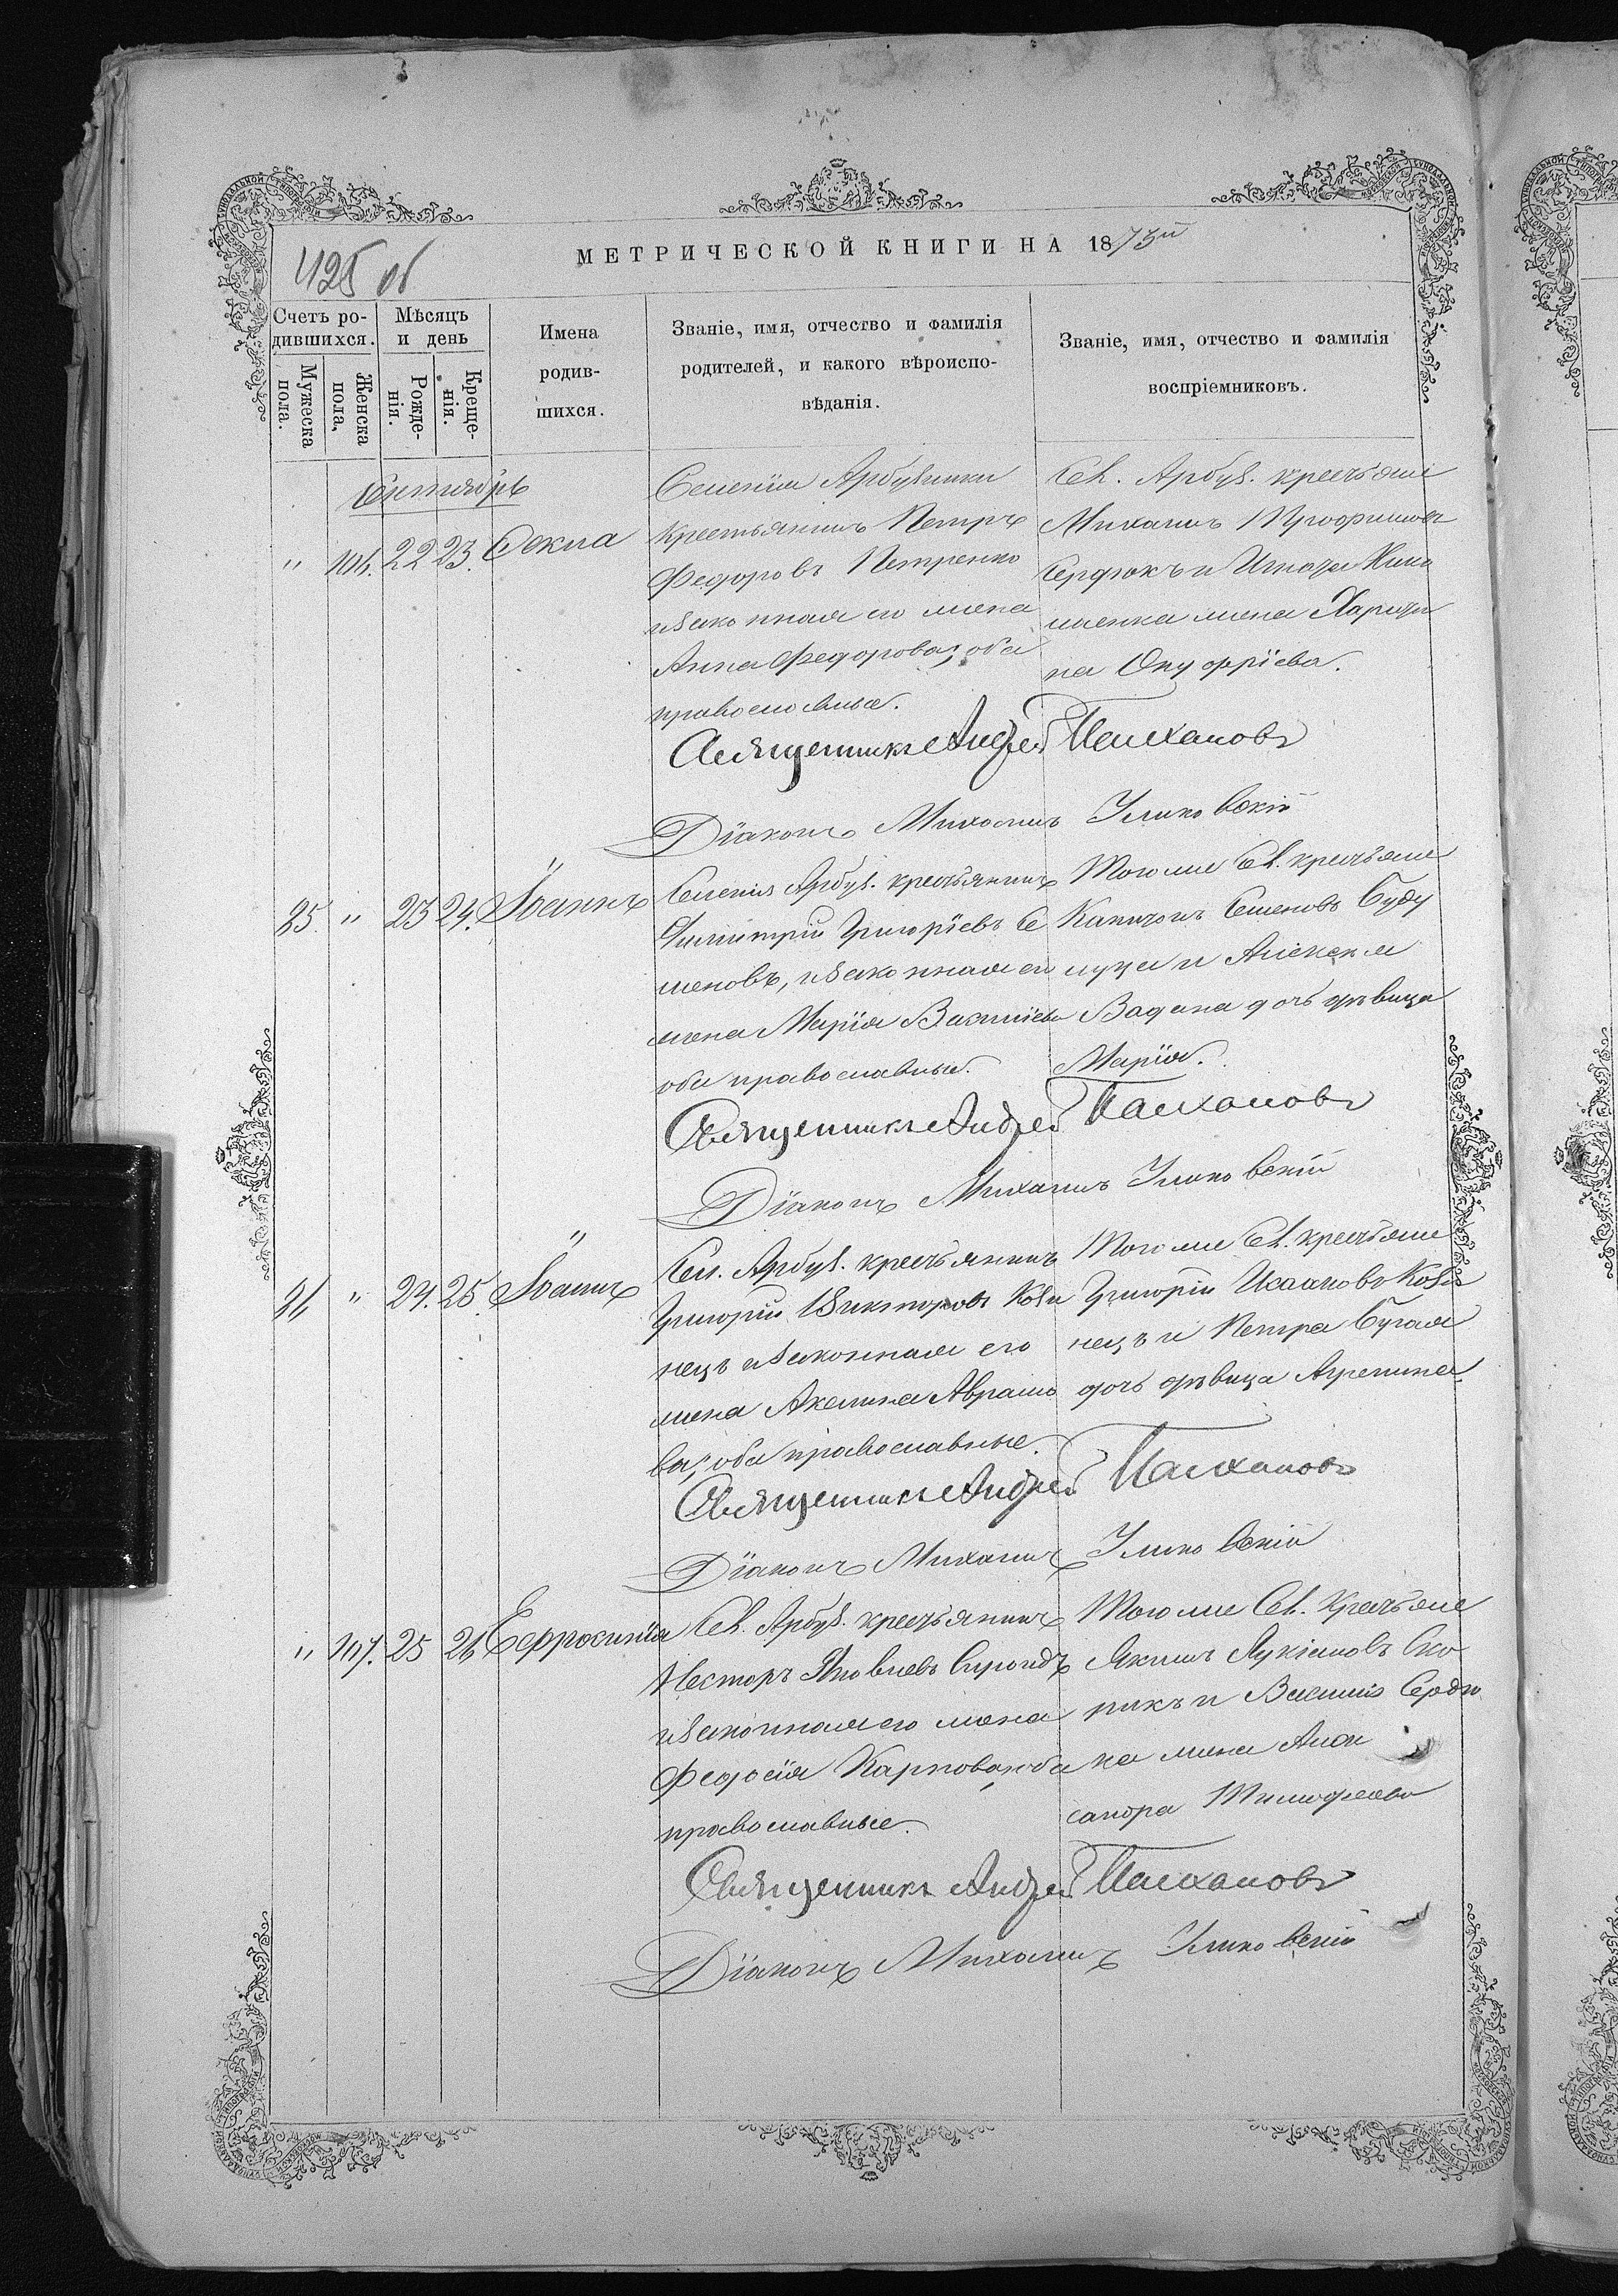 425 об
МЕТРИЧЕСКОЙ КНИГИ НА 1873й
Счетъ ро-
дившихся.
Мужеска
пола.
Женска
пола.
Мѣсяцъ
и день
Рожде-
нія.
Креще-
нія.
Имена
родив-
шихся.
Званіе, имя, отчество и фамилія
родителей, и какого вѣроиспо-
вѣданія.
Званіе, имя, отчество и фамилія
воспріемниковъ.
Сентябрь
" 106. 22 23. Ѳекла
Селенія Арбузинки
крестьянинъ Петръ
Федоровъ Петренко
и законная его жена
Анна Федорова, оба
православные.
Сел. Арбуз. крестьяне
Михаилъ Трофимовъ
Сердюкъ и
жена
на Онуфріева.
Священникъ Андрей
Діаконъ Михаилъ
85. " 23 24. Іоаннъ
Селенія Арбуз. крестьянинъ
Димитрій Григорієвъ Се
меновъ, и законная его
жена Марія Васильева
оба православные.
Того же Сел. крестьяне
Семеновъ Буду
и Алексея
дочь дѣвица
Марія.
Священникъ Андрей
Діаконъ Михаилъ
86 " 24. 25. Іоаннъ
Сел. Арбуз. крестьянинъ
Григорій Викторовъ Кози
нецъ и законная его
жена Акелина Аврамо
ва, оба православные.
Того же Сел. крестьяне
Григорій Исааковъ Кози
нецъ и Петра Бугая
дочь дѣвица Агрепина.
Священникъ Андрей
Діаконъ Михаилъ
" 107. 25 26 Ефросинія
Сел. Арбуз. крестьянинъ
Несторъ Яковлевъ
и законная его жена
Феодосія Карпова, оба
православные.
Того же Сел. Крестьяне
Якимъ Лукіановъ Ско
рикъ и Василія Сердю
ка жена Алек
сандра Тимофеева
Священникъ Андрей
Діаконъ Михаилъ